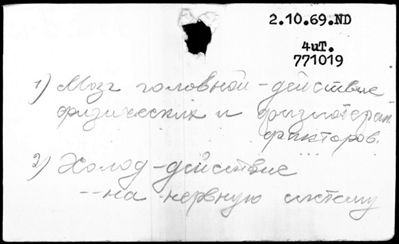 2.10.69.ND
4чТ.
771019
1) Мозг головной - действие
физических и физиотерап.
факторов.
2) Холод - действие
-- на нервную систему